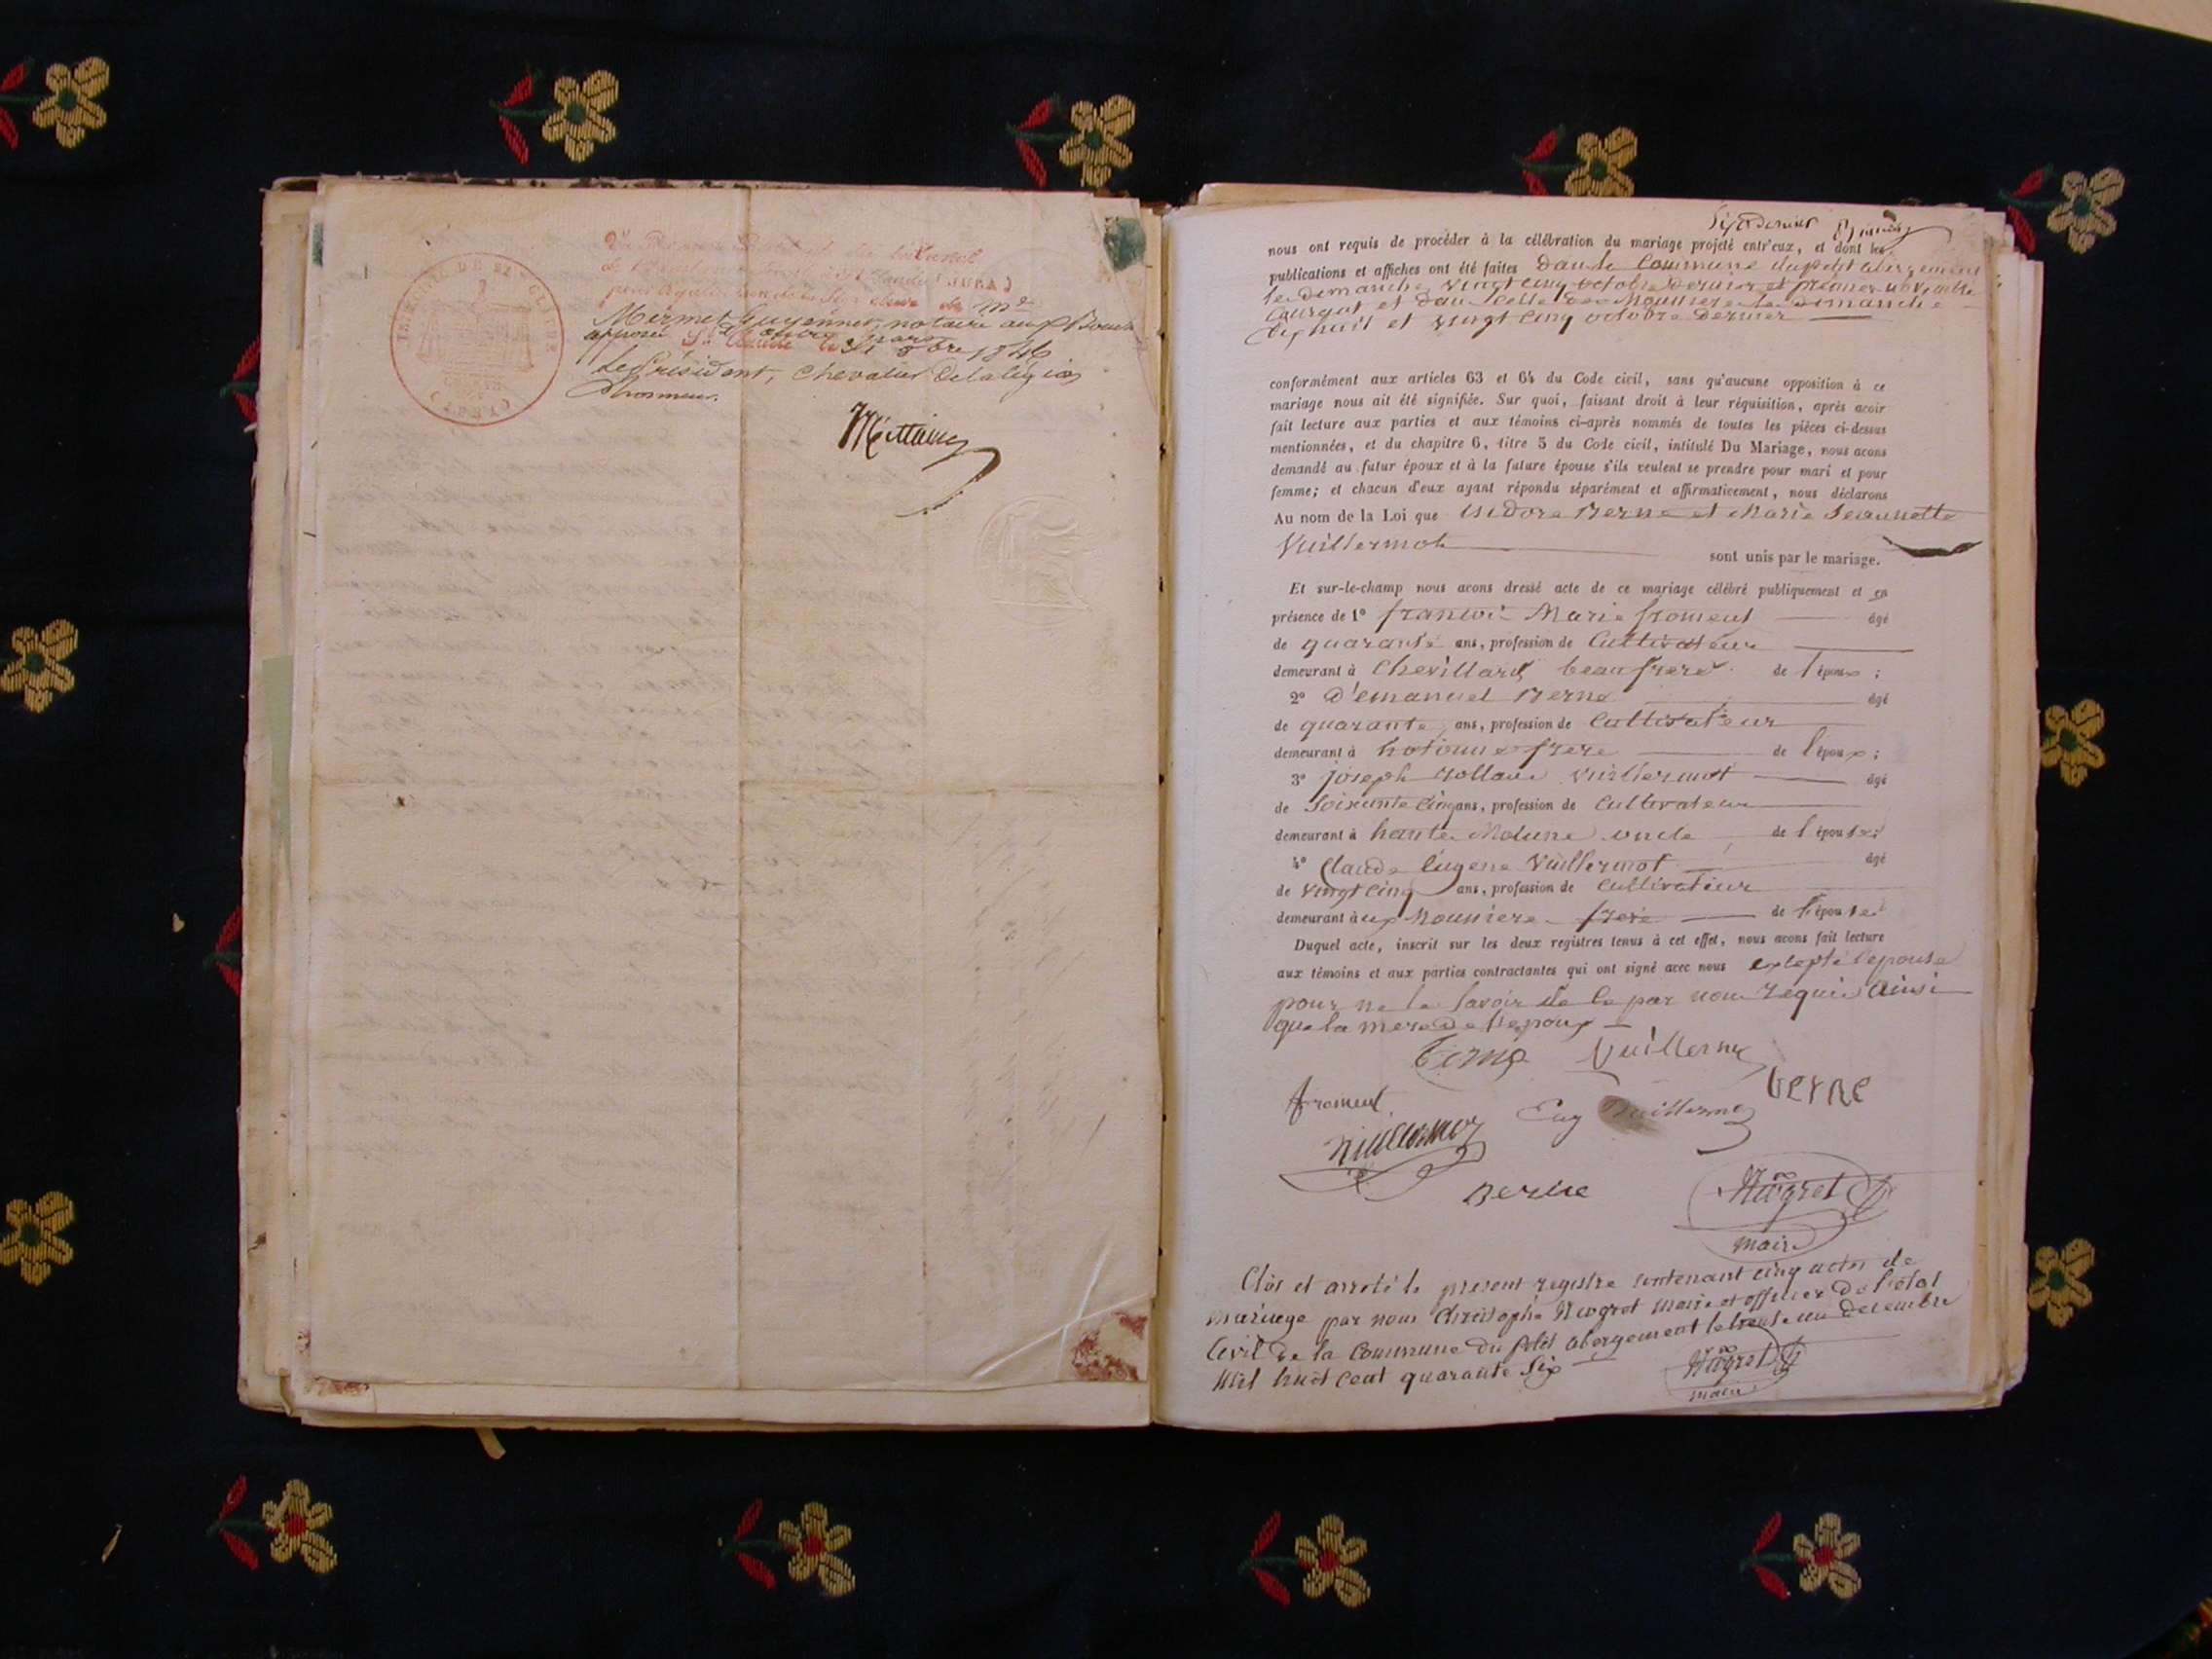 TRIBUNAL DE ST CLAUDE
(JURA)
de Me
Mermet Guyennet, notaire aux Bouch
apposée d'autre part
St Claude le 31 8bre 1846
Le Président, Chevalier De la légion
d'honneur.
nous ont requis de procéder à la célébration du mariage projeté entr'eux, et dont les
publications et affiches ont été faites Dans la Commune du petit abergement
les dimanches vingt cinq octobre dernier et premier novembre
courant et dans celle des Mounieres les dimanche
dix huit et vingt cinq octobre dernier
conformément aux articles 63 et 64 du Code civil, sans qu'aucune opposition à ce
mariage nous ait été signifiée. Sur quoi, faisant droit à leur réquisition, après avoir
fait lecture aux parties et aux témoins ci-après nommés de toutes les pièces ci-dessus
mentionnées, et du chapitre 6, titre 5 du Code civil, intitulé Du Mariage, nous avons
demandé au futur époux et à la future épouse s'ils veulent se prendre pour mari et pour
femme; et chacun d'eux ayant répondu séparément et affirmativement, nous déclarons
Au nom de la Loi que Isidore Berne et Marie Jeannette
Vuillermoz
sont unis par le mariage.
Et sur-le-champ nous avons dressé acte de ce mariage célébré publiquement et en
présence de 1° francoi Marie froment âgé
de quarante ans, profession de Cultivateur
demeurant à Chevillard beaufrere de l'époux ;
2° D'emanuel Berne âgé
de quarante ans, profession de Cultivateur
demeurant à hotonne frere de l'époux ;
3° joseph Vuillermot âgé
de Soixante Cinq ans, profession de Cultivateur
demeurant à haute Molune oncle de l'épouse;
4° Claude Eugene Vuillermot âgé
de vingt cinq ans, profession de Cultivateur
demeurant à ux Mouniere frere de l'épouse
Duquel acte, inscrit sur les deux registres tenus à cet effet, nous avons fait lecture
aux témoins et aux parties contractantes qui ont signé avec nous excepté l'epouse
pour ne le savoir de ce par nous requis ainsi
que la mere de l'epoux
berne Vuillermoz
froment Eug Vuillermoz berne
Vuillermoz
Berne Niogret
maire
Clôs et arrêté le present registre contenant cinq actes de
mariage par nous Christophe Niogret maire et officier De l'état
Civil de la Commune du petit abergement le trente un decembre
Mil huit cent quarante six
Niogret
maire